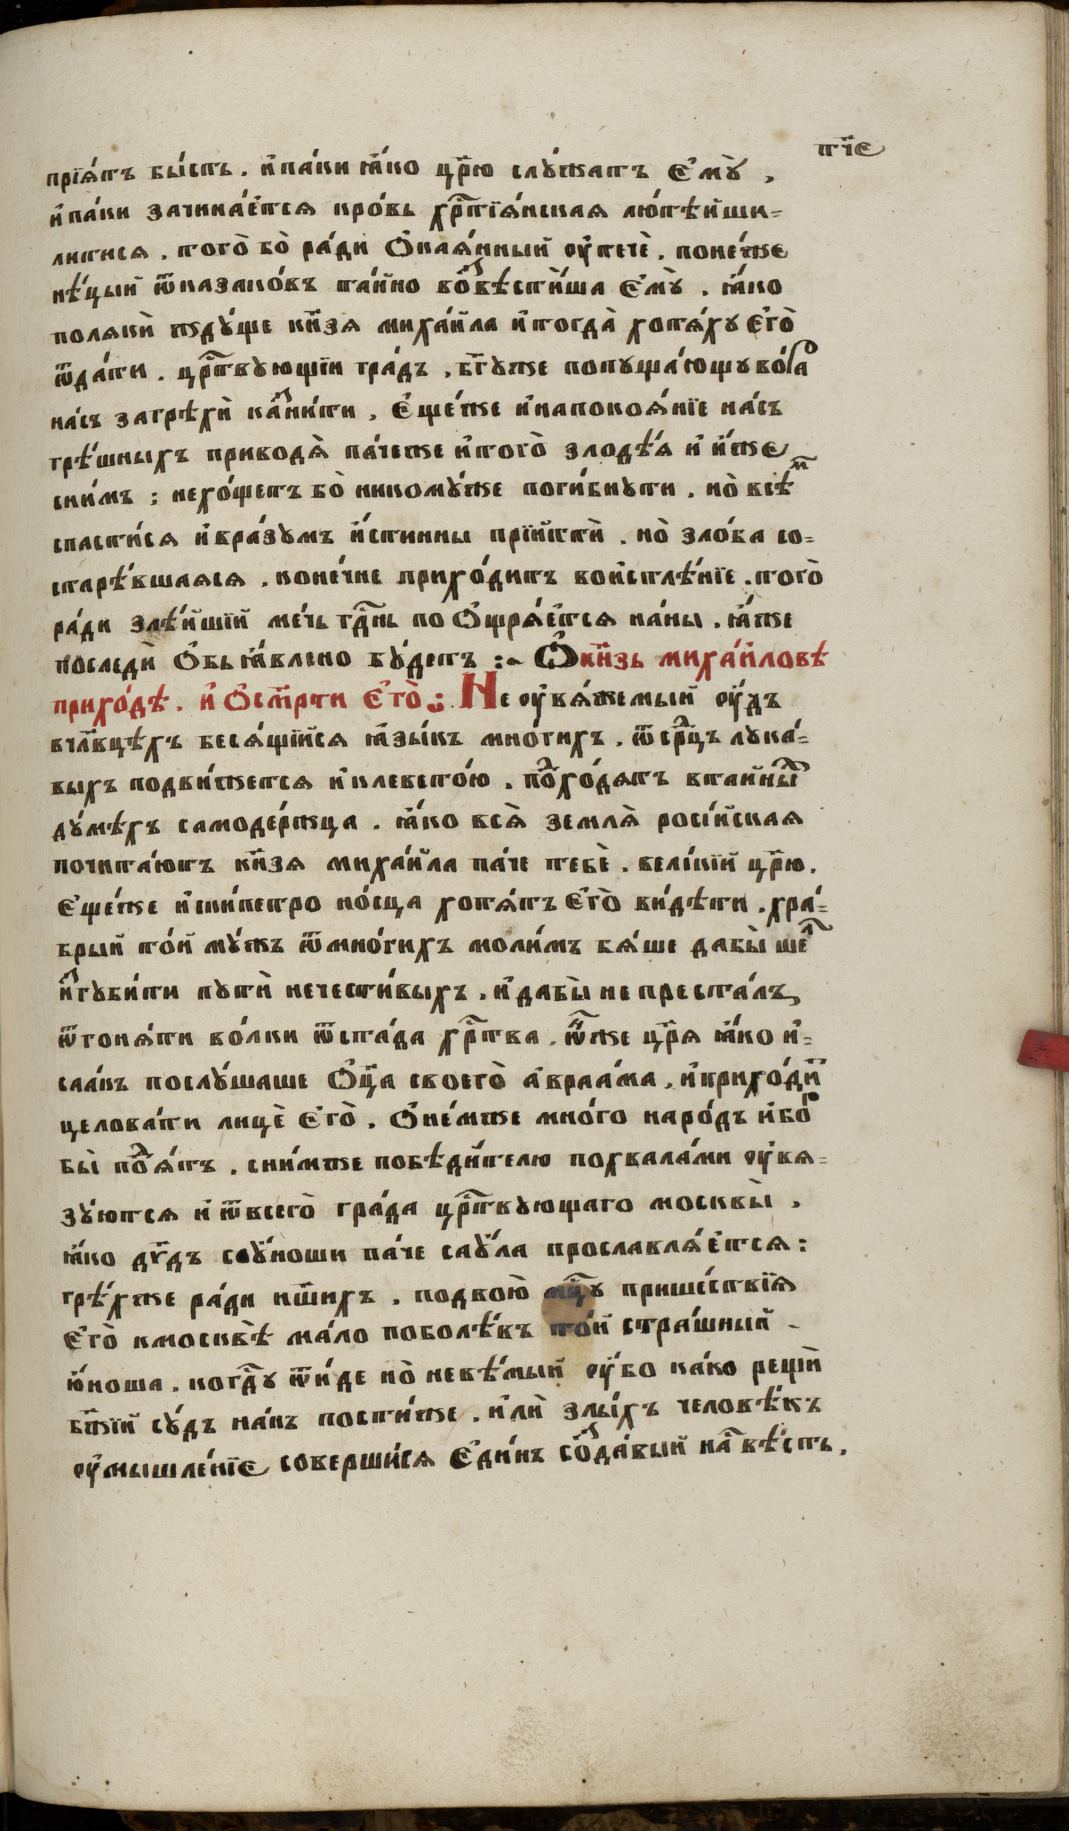 пт҃іе
прїѧ́тъ бы́сть. и҆па́ки ꙗ҆́ко цр҃ю слꙋ́жатъ є҆мꙋ̀,
и҆па́ки зачина́етсѧ кро́вь хрⷭ҇тїѧ́нская лютѣ́йши-
литися. того̀ бо̀ ра́ди ѻ҆каѧ́нный ᲂу҆течѐ. поне́же
нѣ́цый ѿказако́въ та́йно воꙁ̾вѣсти́ша є҆мꙋ̀. ꙗ҆́ко
полякѝ ждꙋ́ще кн҃зя миха́йла и҆тогда̀ хотѧ́хꙋ є҆го̀
ѿда́ти. црⷭ҇твꙋющїй гра́дъ, бг҃ꙋже попꙋща́ющꙋ во́ра
на́съ загрѣхѝ каꙁни́ти. є҆ще́же и҆напокоѧ́нїе на́съ
грѣ́шныхъ приводѧ̀ па́чеже и҆того̀ злодѣ́ѧ и҆ и҆́же
сни́мъ: нехо́щетъ бо̀ никомꙋ́же поги́бнꙋти. но̀ всѣⷨ
спасти́ся и҆вра́зꙋмъ и҆́стинны прїйтѝ. но̀ зло́ба со-
старѣ́вшаяся. коне́чне прихо́дитъ воистлѣ́нїе. того̀
ра́ди злѣ́йшїй ме́чь гдⷭ҇нь по ѻ҆щрѧ́етсѧ на́ны. ꙗ҆́же
последѝ ѻ҆бьꙗ҆влено бꙋ́детъ :~ Ѽкн҃зь миха́иловѣ
прихо́дѣ. и҆ ѻ҆см҃рти є҆го̀: Не ᲂу҆вѧ́жемый ᲂу҆́дъ
вчл҃вцѣхъ бесѧ́щїйся ꙗ҆зы́къ мно́гихъ. ѿсрⷣцъ лꙋка́-
выхъ подви́жется и҆клевето́ю. поⷣхо́дятъ втайныⷯ
дꙋ́мѣхъ самоде́ржца. ꙗ҆́ко всѧ̀ землѧ̀ росі́йская
почита́ютъ кн҃зя миха́йла па́че тебѐ. вели́кїй цр҃ю.
є҆ще́же и҆ски́петро но́сца хотѧ́тъ є҆го̀ ви́дѣти. хра́-
брый то́й мꙋ́жъ ѿмно́гихъ моли́мъ бѧ́ше дабы̀ шеⷧ҇
и҆ꙁгꙋби́ти пꙋтѝ нечести́выхъ. и҆дабы̀ непреста́лъ,
ѿгонѧ́ти во́лки ѿста́да хрⷭ҇тва. ѻ҆нже цр҃я ꙗ҆́ко и҆-
саакъ послꙋ́шаше ѻ҆ц҃а своего̀ а҆враа́ма. и҆прихо́диⷮ
целова́ти лицѐ є҆го̀. ѻ҆не́мже мно́го наро́дъ и҆во́ⷭ
бы̀ поⷣѧ́тъ. сни́мже побѣди́телю похвала́ми ᲂу҆вѧ-
зꙋ́ются и҆ ѿвсего̀ гра́да црⷭ҇твꙋющаго москвы̀,
ꙗ҆́ко дв҃дъ сᲂу҆́ноши па́че саꙋ́ла прославлѧ́етсѧ:
грѣ́хже ра́ди нш҃ихъ. подвою̀ мцⷭ҇ꙋ прише́ствїѧ
є҆го̀ кмосквѣ̀ ма́ло поболѣ́въ то́й стра́шный
ю҆́ноша. когдⷭ҇ꙋ ѿи́де но̀ невѣ́мый ᲂу҆́бо ка́ко рещѝ
бж҃їй сꙋ́дъ на́нь пости́же. и҆лѝ злы́хъ человѣ́къ
ᲂу҆мышле́нїе соверши́ся є҆ди́нъ соꙁда́вый наⷭ҇ вѣ́сть.